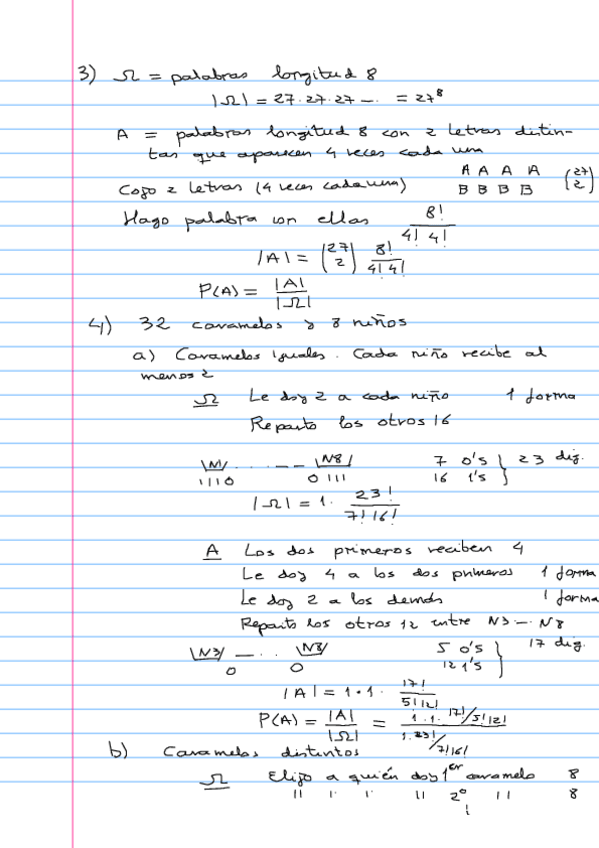 3) Ω = palabras longitud 8
|Ω| = 27·27·27 -... = 27⁸
A = palabras longitud 8 con 2 letras distin-
tas que aparecen 4 veces cada una
A A A A
Cojo 2 letras (4 veces cada una) B B B B (27 2)
Hago palabra con ellas 8! / 4! 4!
|A| = (27 2) 8! / 4! 4!
P(A) = |A| / |Ω|
4) 32 caramelos y 8 niños
a) Caramelos iguales. Cada niño recibe al
menos 2
Ω Le doy 2 a cada niño 1 forma
Reparto los otros 16
N1 ... -- N8 7 0's } 23 dig.
1110 0 111 16 1's
|Ω| = 1· 23! / 7! 16!
A Los dos primeros reciben 4
Le doy 4 a los dos primeros 1 forma
Le doy 2 a los demás 1 forma
Reparto los otros 12 entre N3 -.. N8
N3 -... N8 5 0's } 17 dig.
0 0 12 1's
|A| = 1·1· 17! / 5! 12!
P(A) = |A| / |Ω| = 1·1· 17!/5!12! / 1·23!/7!16!
b) Caramelos distintos
Ω Elijo a quién doy 1er caramelo 8
11 1· 1· 11 2º 11 8